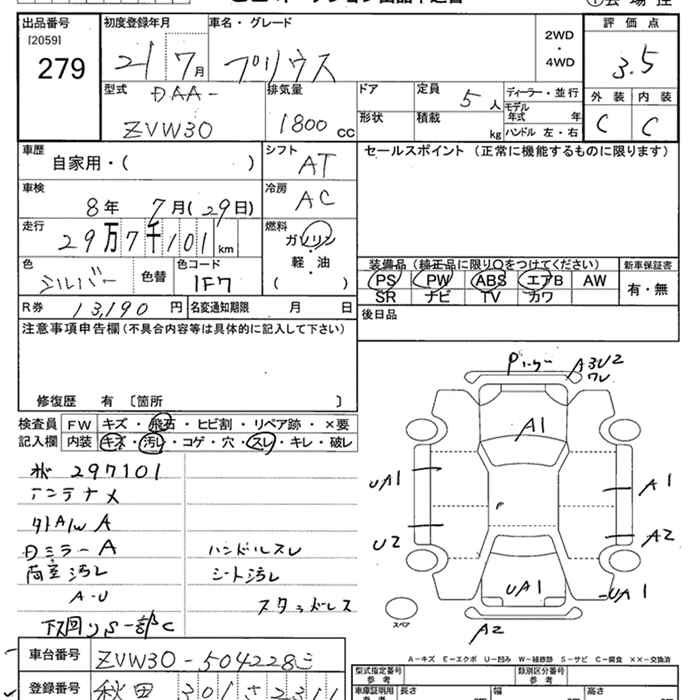 出品番号 初度登録年月 車名・グレード 評価点
[2059]
279
21 7月 プリウス 2WD・4WD 3.5
型式 DAA-ZVW30
排気量 1800 cc
ドア 定員 5人 ディーラー・並行
形状 積載 kg モデル年式 年
ハンドル 左・右
外装 内装
C C
車歴 自家用・( )
シフト AT
セールスポイント (正常に機能するものに限ります)
車検 8年 7月(29日)
冷房 AC
走行 29万7千101km
燃料 ガソリン・軽・油 ( )
色 シルバー 色替 色コード 1F7
装備品 (純正品に限り○をつけてください) 新車保証書
PS PW ABS エアB AW 有・無
SR ナビ TV カワ
R券 13,190円 名変通知期限 月 日
後日品
注意事項申告欄(不具合内容等は具体的に記入して下さい)
修復歴 有 〔箇所 〕
検査員記入欄 FW キズ・飛石・ヒビ割・リペア跡・×要
内装 キズ・汚レ・コゲ・穴・スレ・キレ・破レ
297101
アンテナメ
外AW A
Dミラー A
ハンドルスレ
シート汚レ
A-U
スタッドレス
下回りS一部C
A3U2
A1
UA1
A1
U2
A2
UA1
UA1
A2
スペア
車台番号 ZVW30-504228
A-キズ E-エクボ U-凹み W-補修跡 S-サビ C-腐食 ××-交換済
型式指定番号 参考 類別区分番号 参考
登録番号 秋田 301 さ 2311
車庫証明用 長さ 幅 高さ